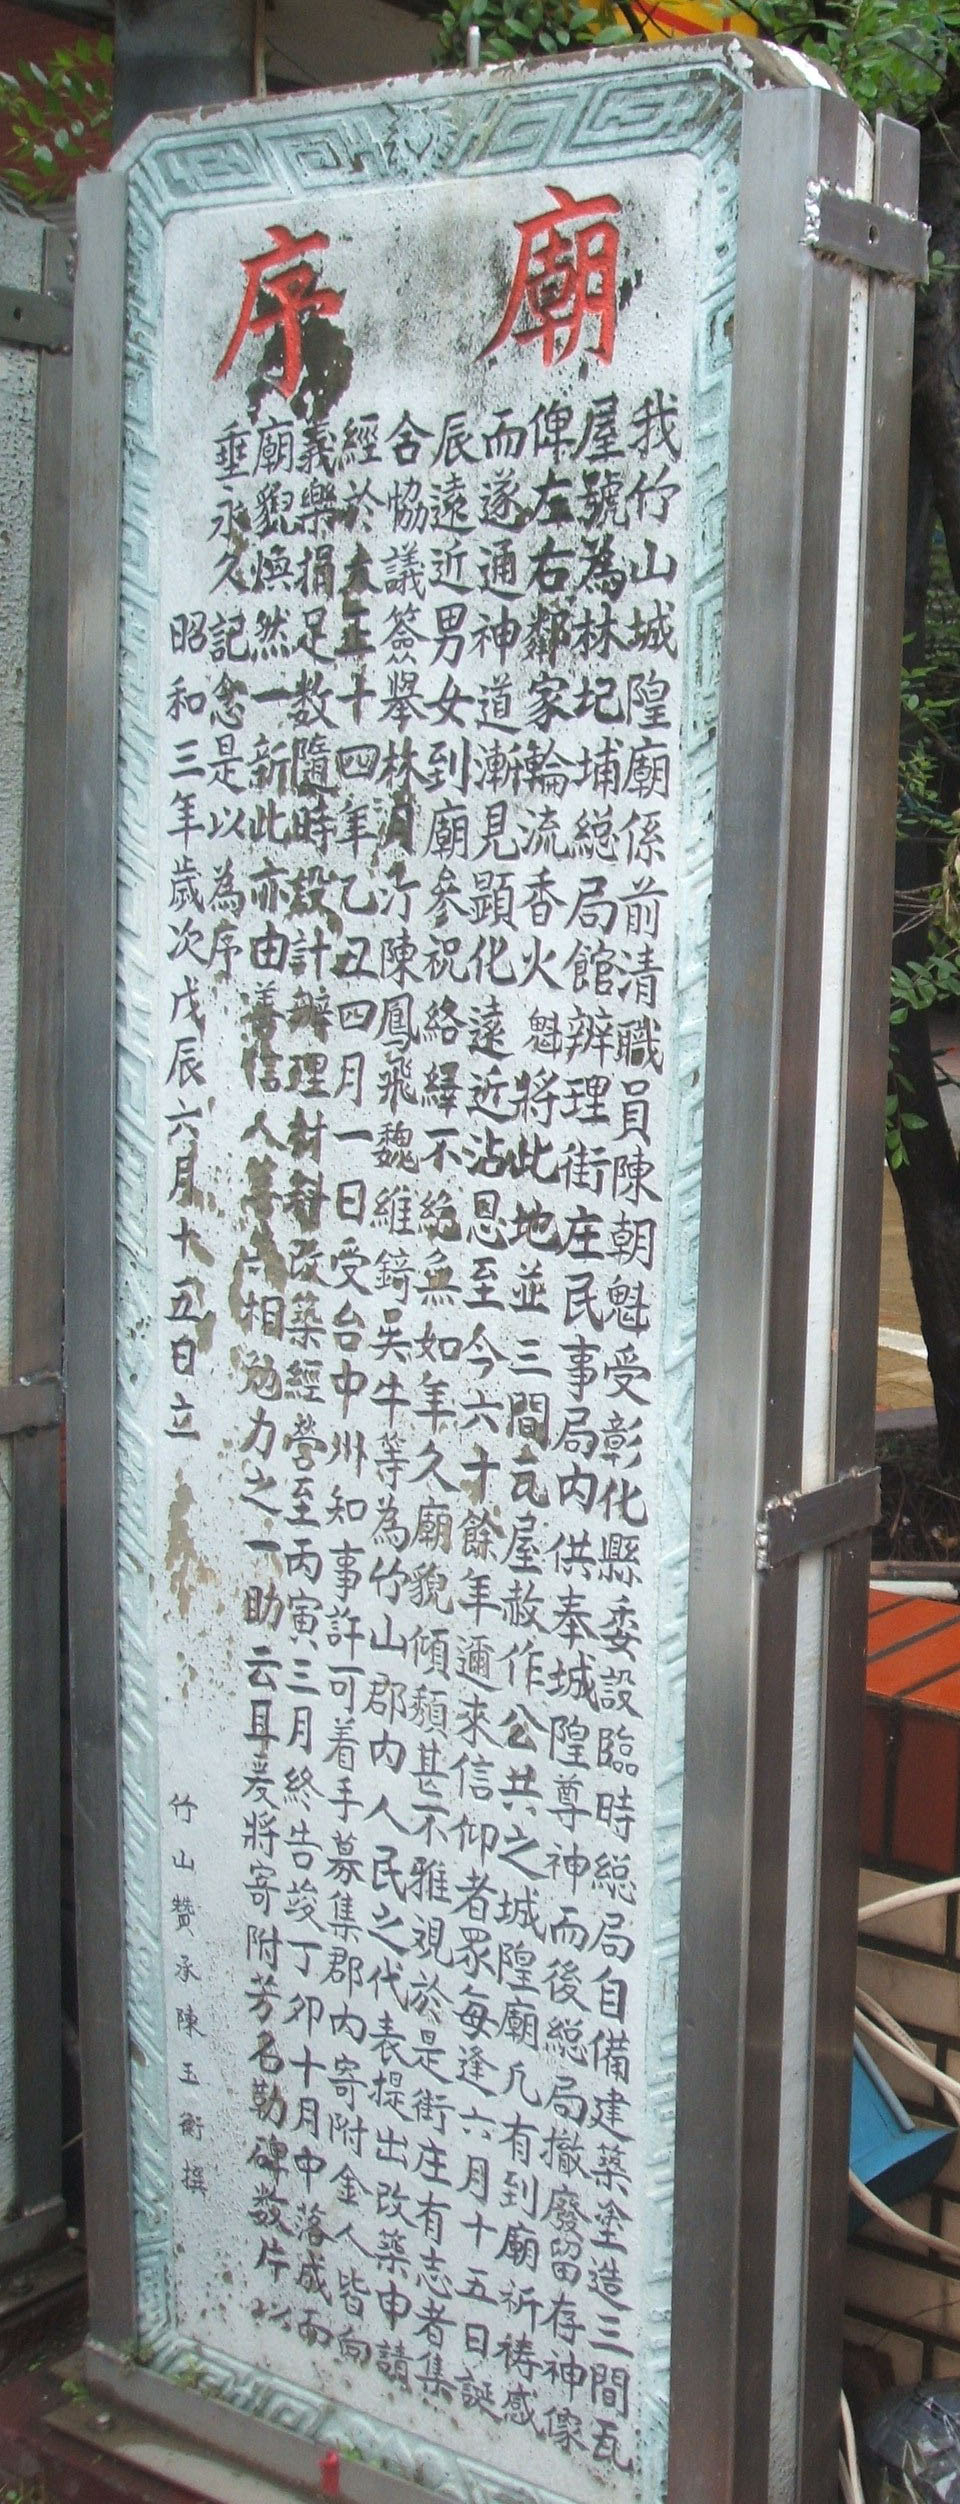 廟序
我竹山城隍廟係前清職員陳朝魁受彰化縣委設臨時總局自備建築塗造三間瓦
屋號為林圯埔總局館辦理街庄民事局內供奉城隍尊神而後總局撤廢留存神像
俾左右鄰家輪流香火魁將此地並三間瓦屋赦作公共之城隍廟凡有到廟祈禱感
而遂通神道漸見顯化遠近沾恩至今六十餘年邇來信仰者眾每逢六月十五日誕
辰遠近男女到廟參祝絡繹不絕無如年久廟貌傾頹甚不雅視於是街庄有志者集
含協議簽舉林月汀陳鳳飛魏維錡吳牛等為竹山郡內人民之代表提出改築申請
經於大正十四年乙丑四月一日受台中州知事許可着手募集郡內寄附金人皆向
義樂捐足数隨時設計辦理材料改築經營至丙寅三月終告竣丁卯十月中落成而
廟貌煥然一新此亦由善信人善相勉力之一助云耳爰將寄附芳名勒碑数片以
垂永久記念是以為序
昭和三年歲次戊辰六月十五日立
竹山贊承陳玉衡撰